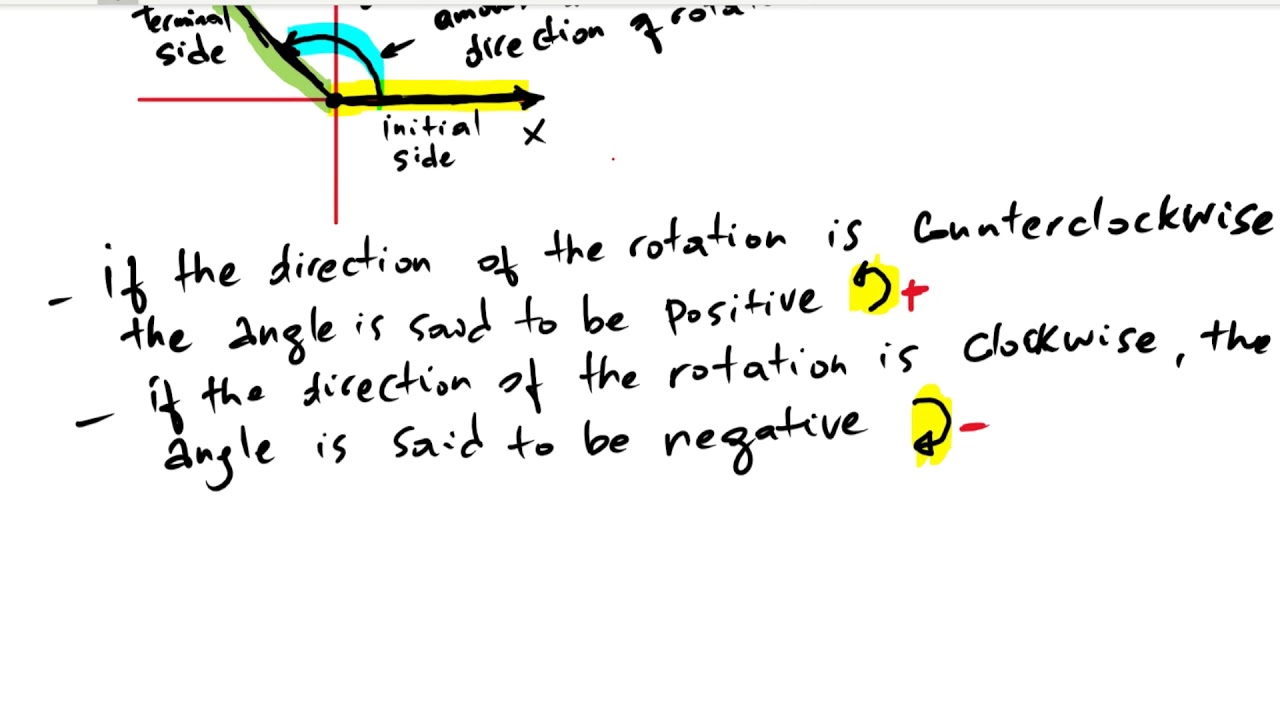 terminal
side
direction of
initial
side
X
- if the direction of the rotation is Counterclockwise
the angle is said to be positive +
- if the direction of the rotation is Clockwise, the
angle is said to be negative -